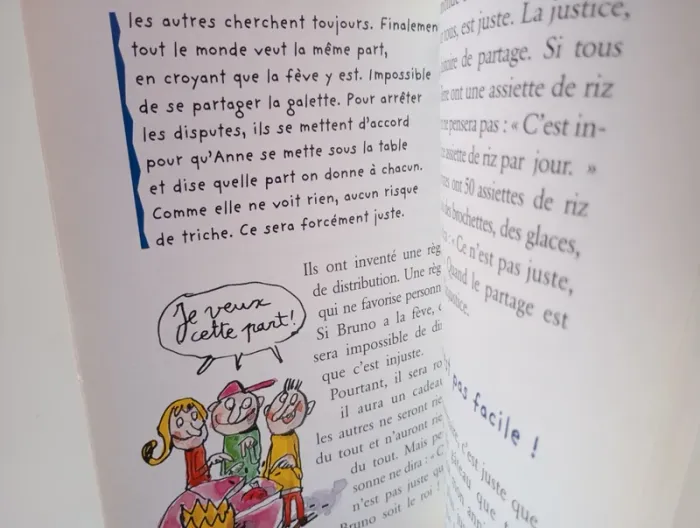 les autres cherchent toujours. Finalemen
tout le monde veut la même part,
en croyant que la fève y est. Impossible
de se partager la galette. Pour arrêter
les disputes, ils se mettent d'accord
pour qu'Anne se mette sous la table
et dise quelle part on donne à chacun.
Comme elle ne voit rien, aucun risque
de triche. Ce sera forcément juste.
Je veux
cette part!
Ils ont inventé une règ
de distribution. Une règ
qui ne favorise personn
Si Bruno a la fève,
sera impossible de di
que c'est injuste.
Pourtant, il sera ro
il aura un cadeau
les autres ne seront rie
du tout et n'auront rie
du tout. Mais pe
sonne ne dira : « C
n'est pas juste qu
Bruno soit le roi
est juste. La justice,
de partage. Si tous
ont une assiette de riz
pensera pas : « C'est in-
assiette de riz par jour. »
ont 50 assiettes de riz
des brochettes, des glaces,
« Ce n'est pas juste,
Quand le partage est
pas facile !
c'est juste que
que
son ann